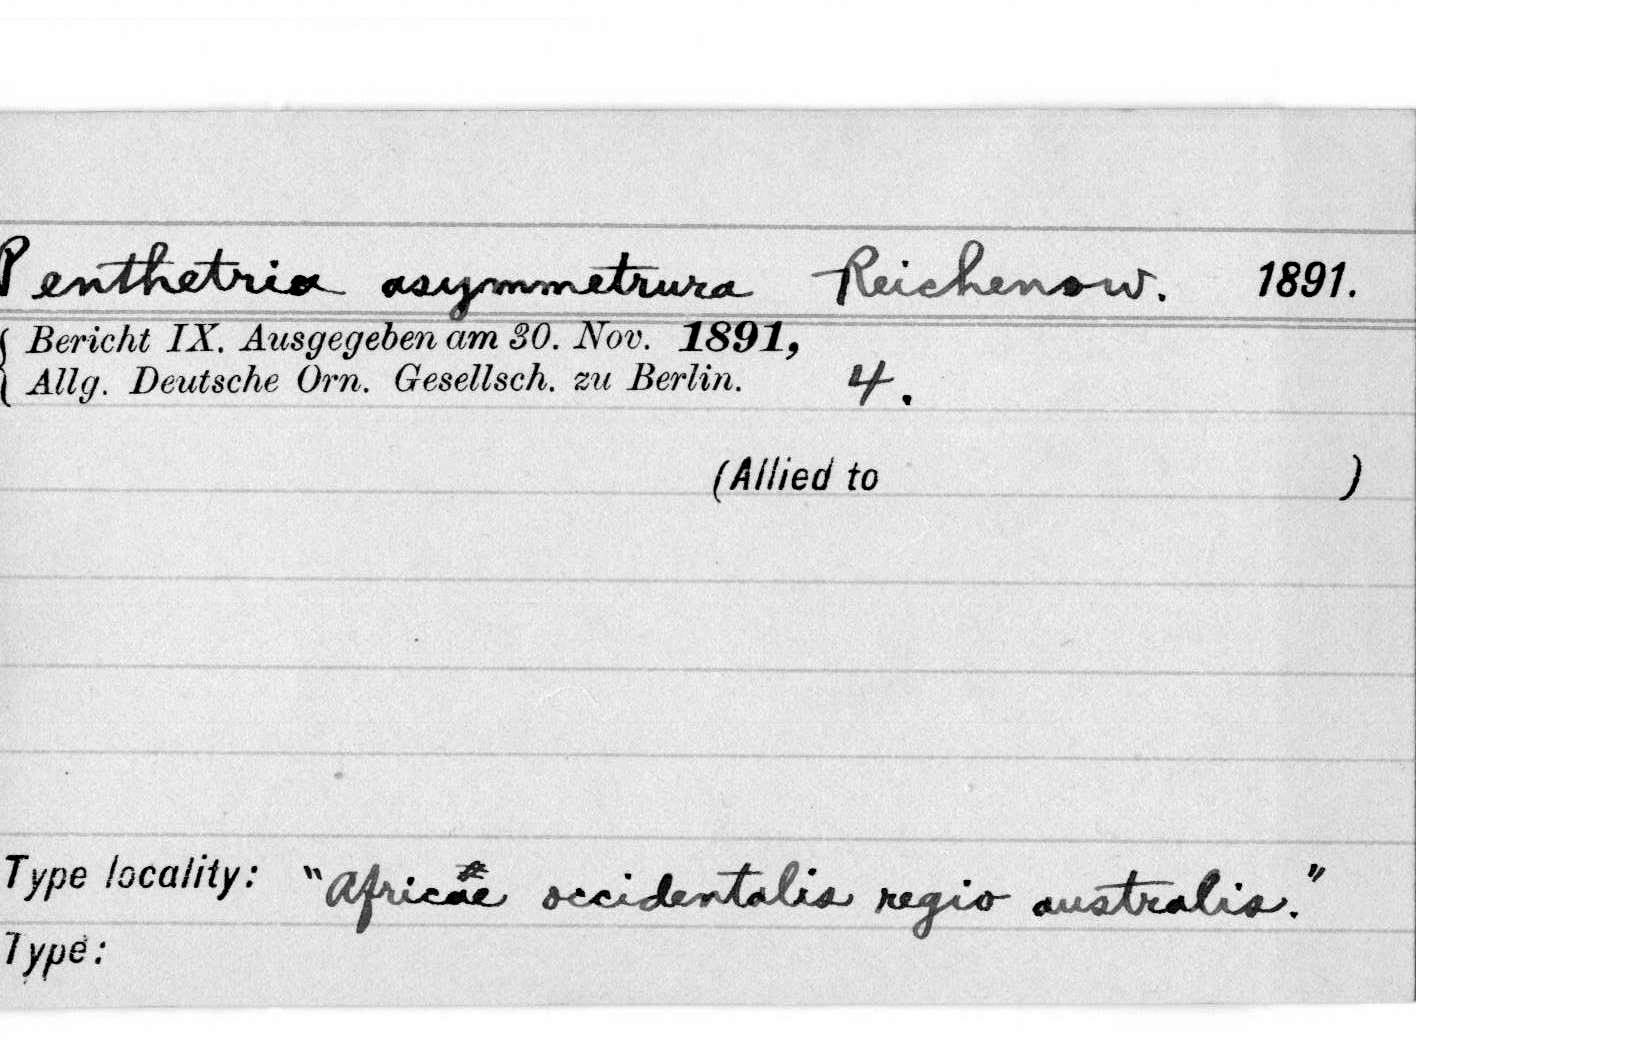 Penthetria asymmetrura Reichenow. 1891.
{ Bericht IX. Ausgegeben am 30. Nov. 1891,
Allg. Deutsche Orn. Gesellsch. zu Berlin. 4.
(Allied to )
Type locality: "Africae occidentalis regio australis."
Type: